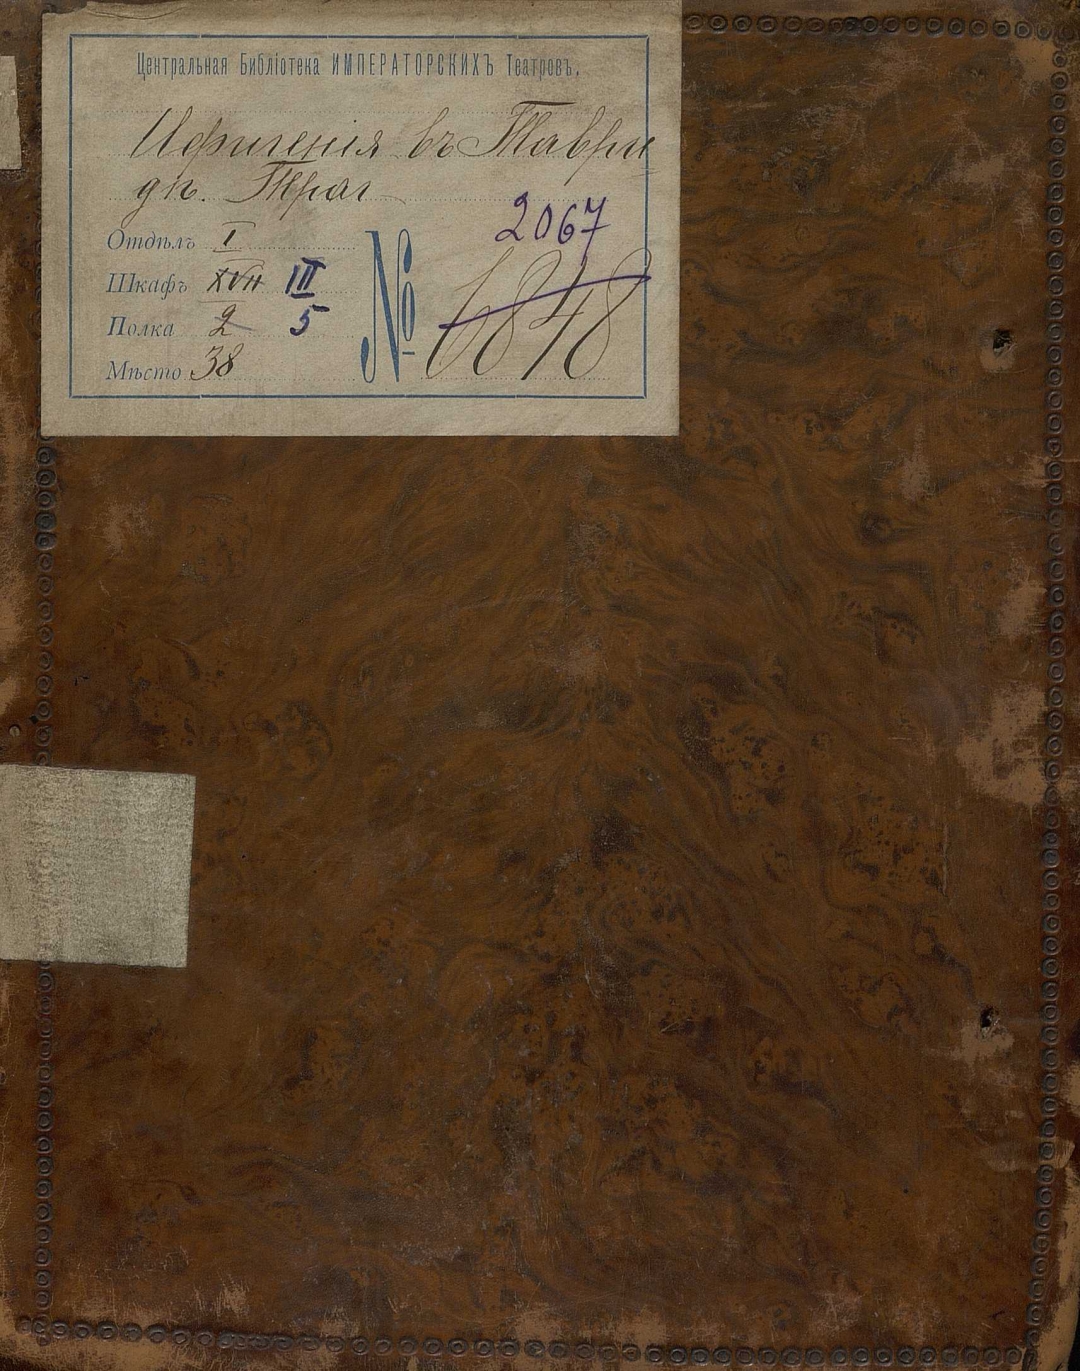 Центральная Библіотека ИМПЕРАТОРСКИХЪ Театровъ.
Ифигенія въ Таври
дѣ. Траг
2067
Отдѣлъ I
Шкафъ XVII III
Полка 2 5
№ 6848
Мѣсто 38